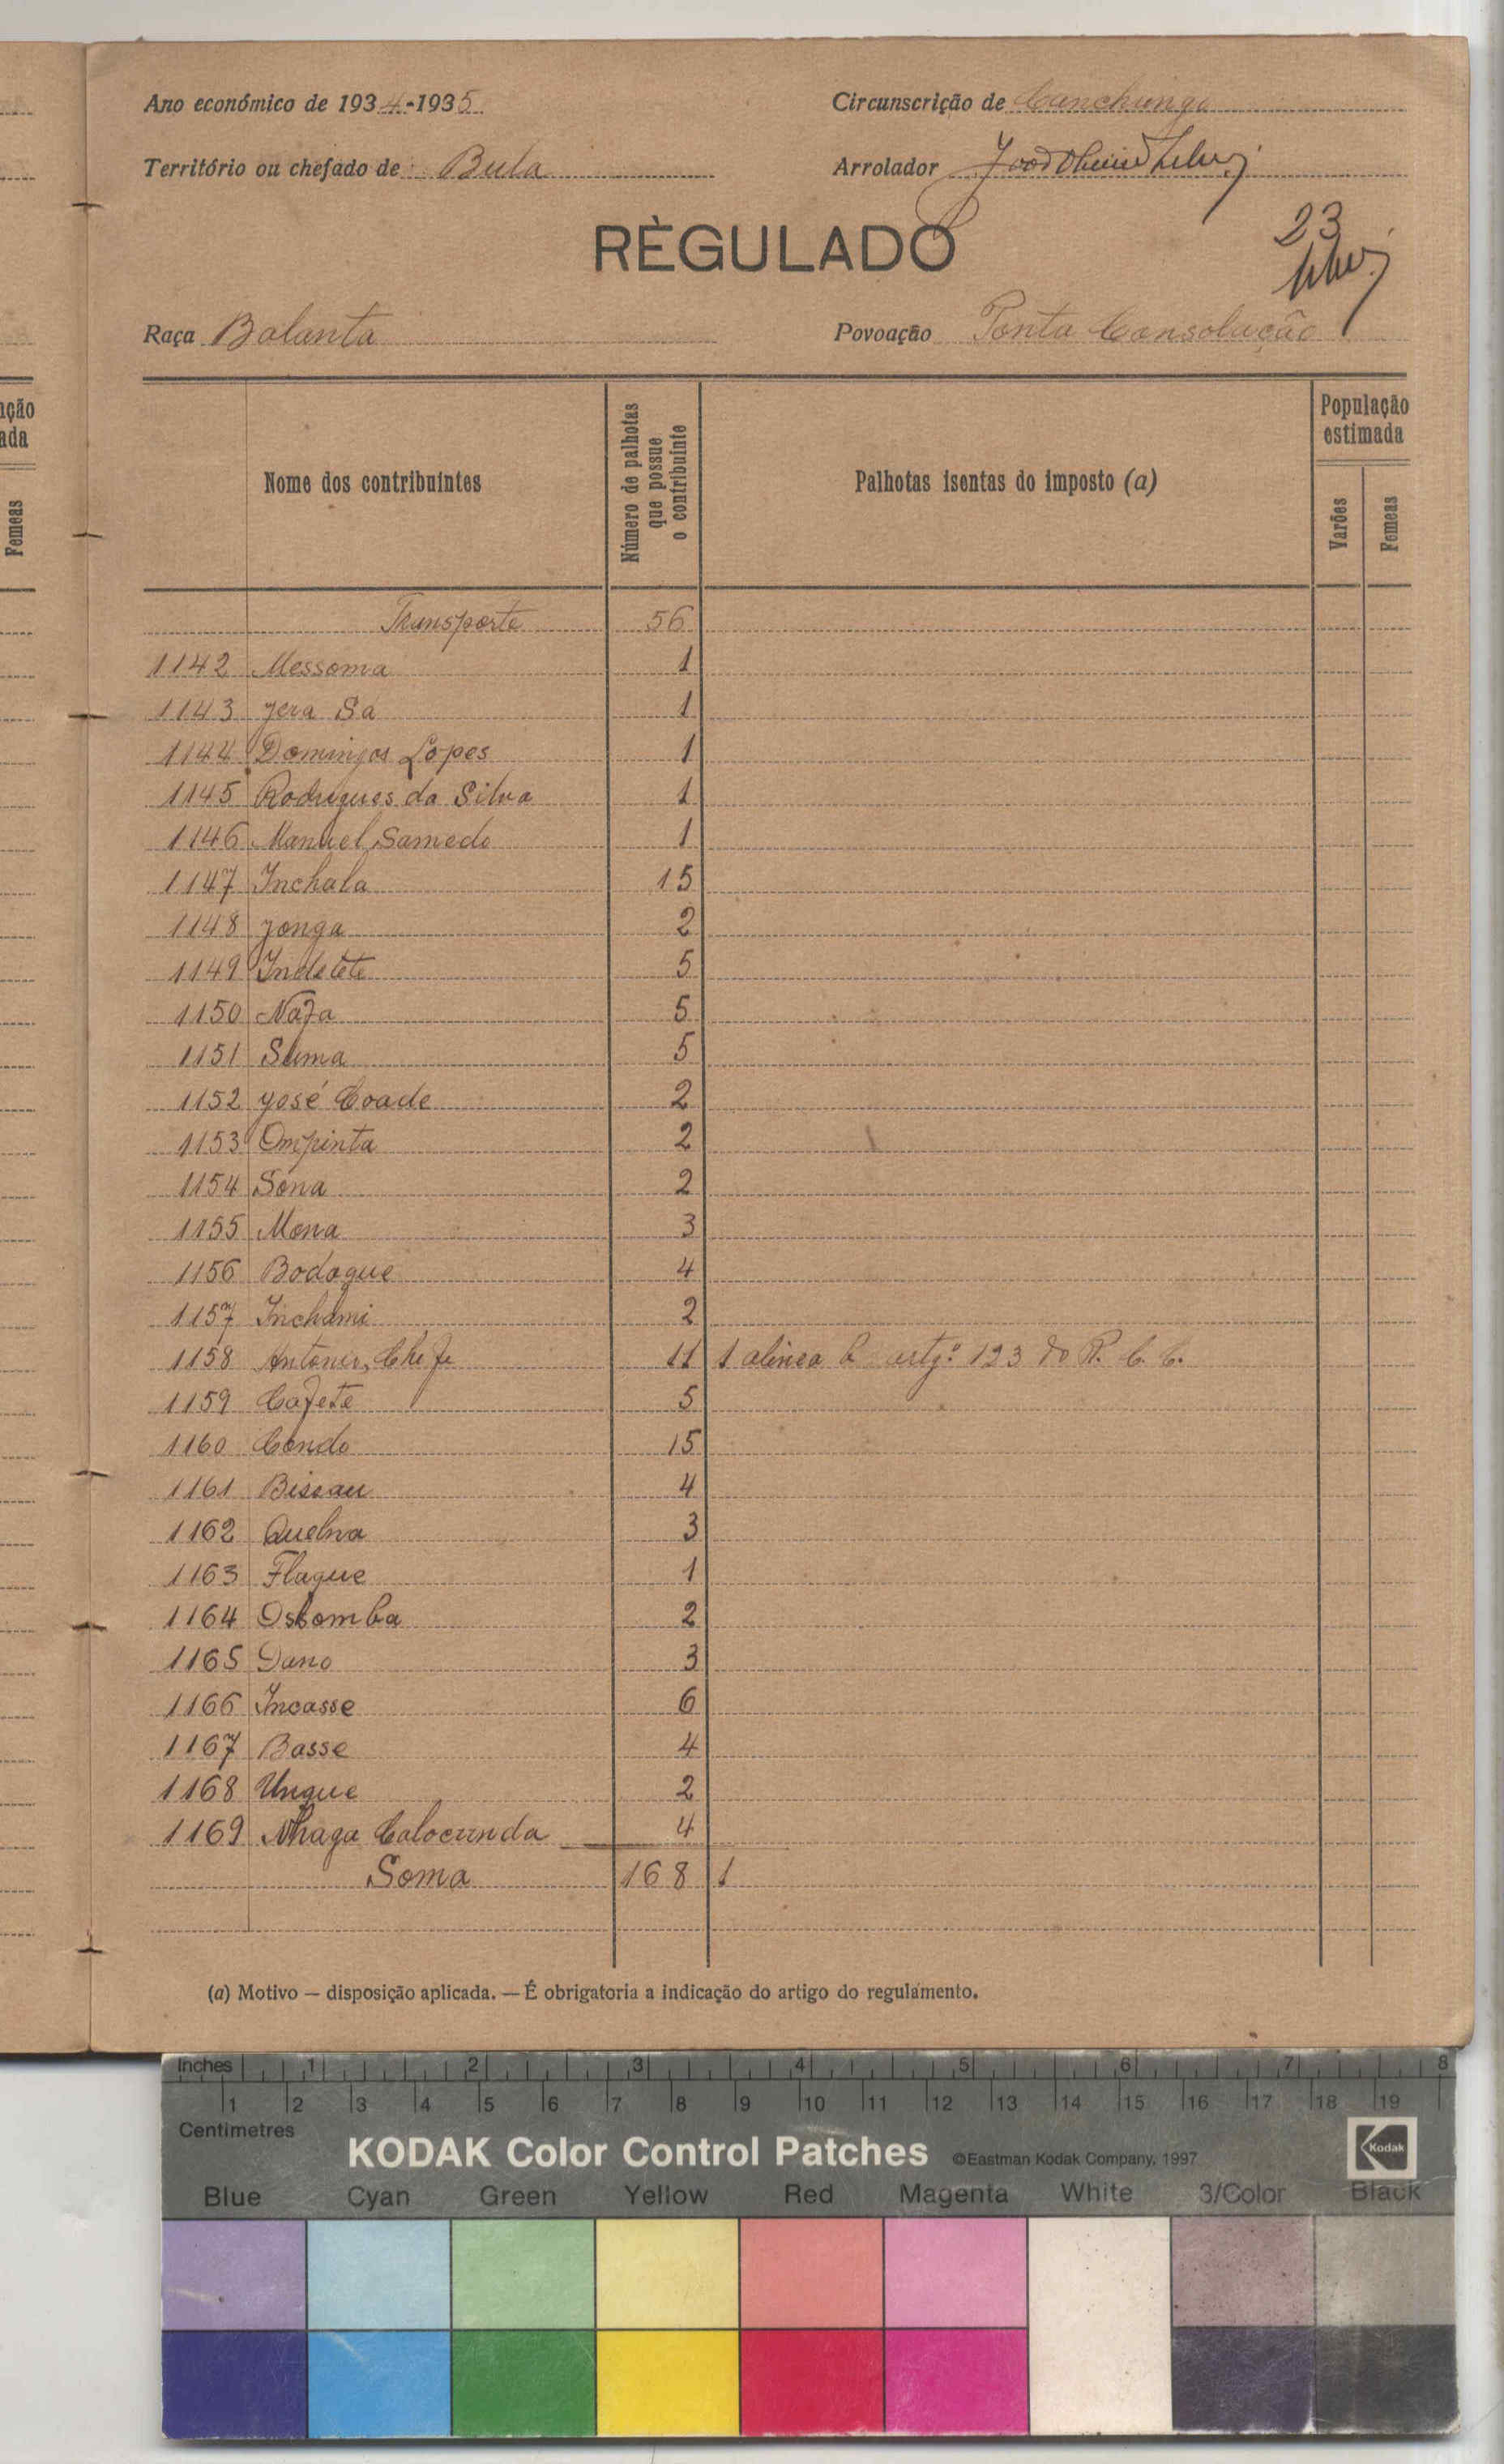 Ano económico de 1934-1935 Circunscrição de Canchungo
Território ou chefado de Bula Arrolador
RÈGULADO
23
Raça Balanta Povoação Ponta Consolação
Nome dos contribuintes
Número de palhotas que possue o contribuinte
Palhotas isentas do imposto (a)
População estimada
Varões
Femeas
Transporte 56
1142 Messoma 1
1143 Jera Sá 1
1144 Domingos Lopes 1
1145 Rodrigues da Silva 1
1146 Manuel Samedo 1
1147 Inchala 15
1148 Jonga 2
1149 Indetete 5
1150 Nafa 5
1151 Suma 5
1152 José Coade 2
1153 Ompinta 2
1154 Sona 2
1155 Mona 3
1156 Bodaque 4
1157 Inchami 2
1158 Antonio, Chefe 11 1 alinea b artgº 123 do R. C. C.
1159 Cafete 5
1160 Condo 15
1161 Bissau 4
1162 Quelna 3
1163 Flaque 1
1164 2
1165 Dano 3
1166 Incasse 6
1167 Basse 4
1168 Ungue 2
1169 Nhaga Calocunda 4
Soma 168 1
(a) Motivo — disposição aplicada. — É obrigatoria a indicação do artigo do regulamento.
nção
ada
Femeas
Inches 1 2 3 4 5 6 7 8
1 2 3 4 5 6 7 8 9 10 11 12 13 14 15 16 17 18 19
Centimetres
KODAK Color Control Patches ©Eastman Kodak Company, 1997 Kodak
Blue Cyan Green Yellow Red Magenta White 3/Color Black